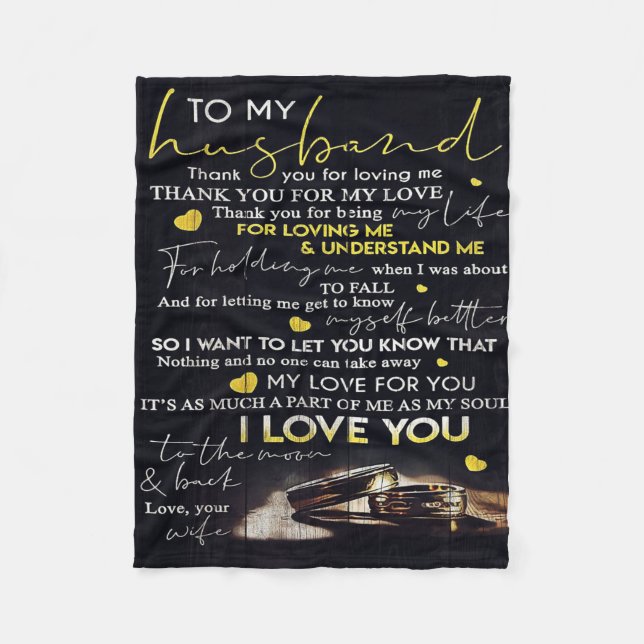 TO MY
husband
Thank you for loving me
THANK YOU FOR MY LOVE
Thank you for being my life
FOR LOVING ME
& UNDERSTAND ME
For holding me when I was about
TO FALL
And for letting me get to know
myself bettler
SO I WANT TO LET YOU KNOW THAT
Nothing and no one can take away
MY LOVE FOR YOU
IT'S AS MUCH A PART OF ME AS MY SOUL
I LOVE YOU
to the moon
& back
Love, your
wife